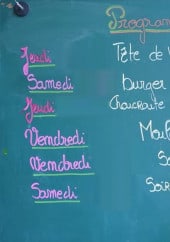 Program
Jeudi Tête de
Samedi Burger
Jeudi Choucroute
Vendredi Moul
Vendredi So
Samedi Soir